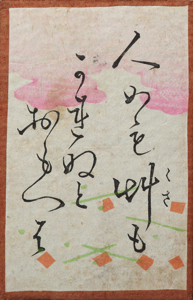 人めも艸も
くさ
かれぬと
おもへは